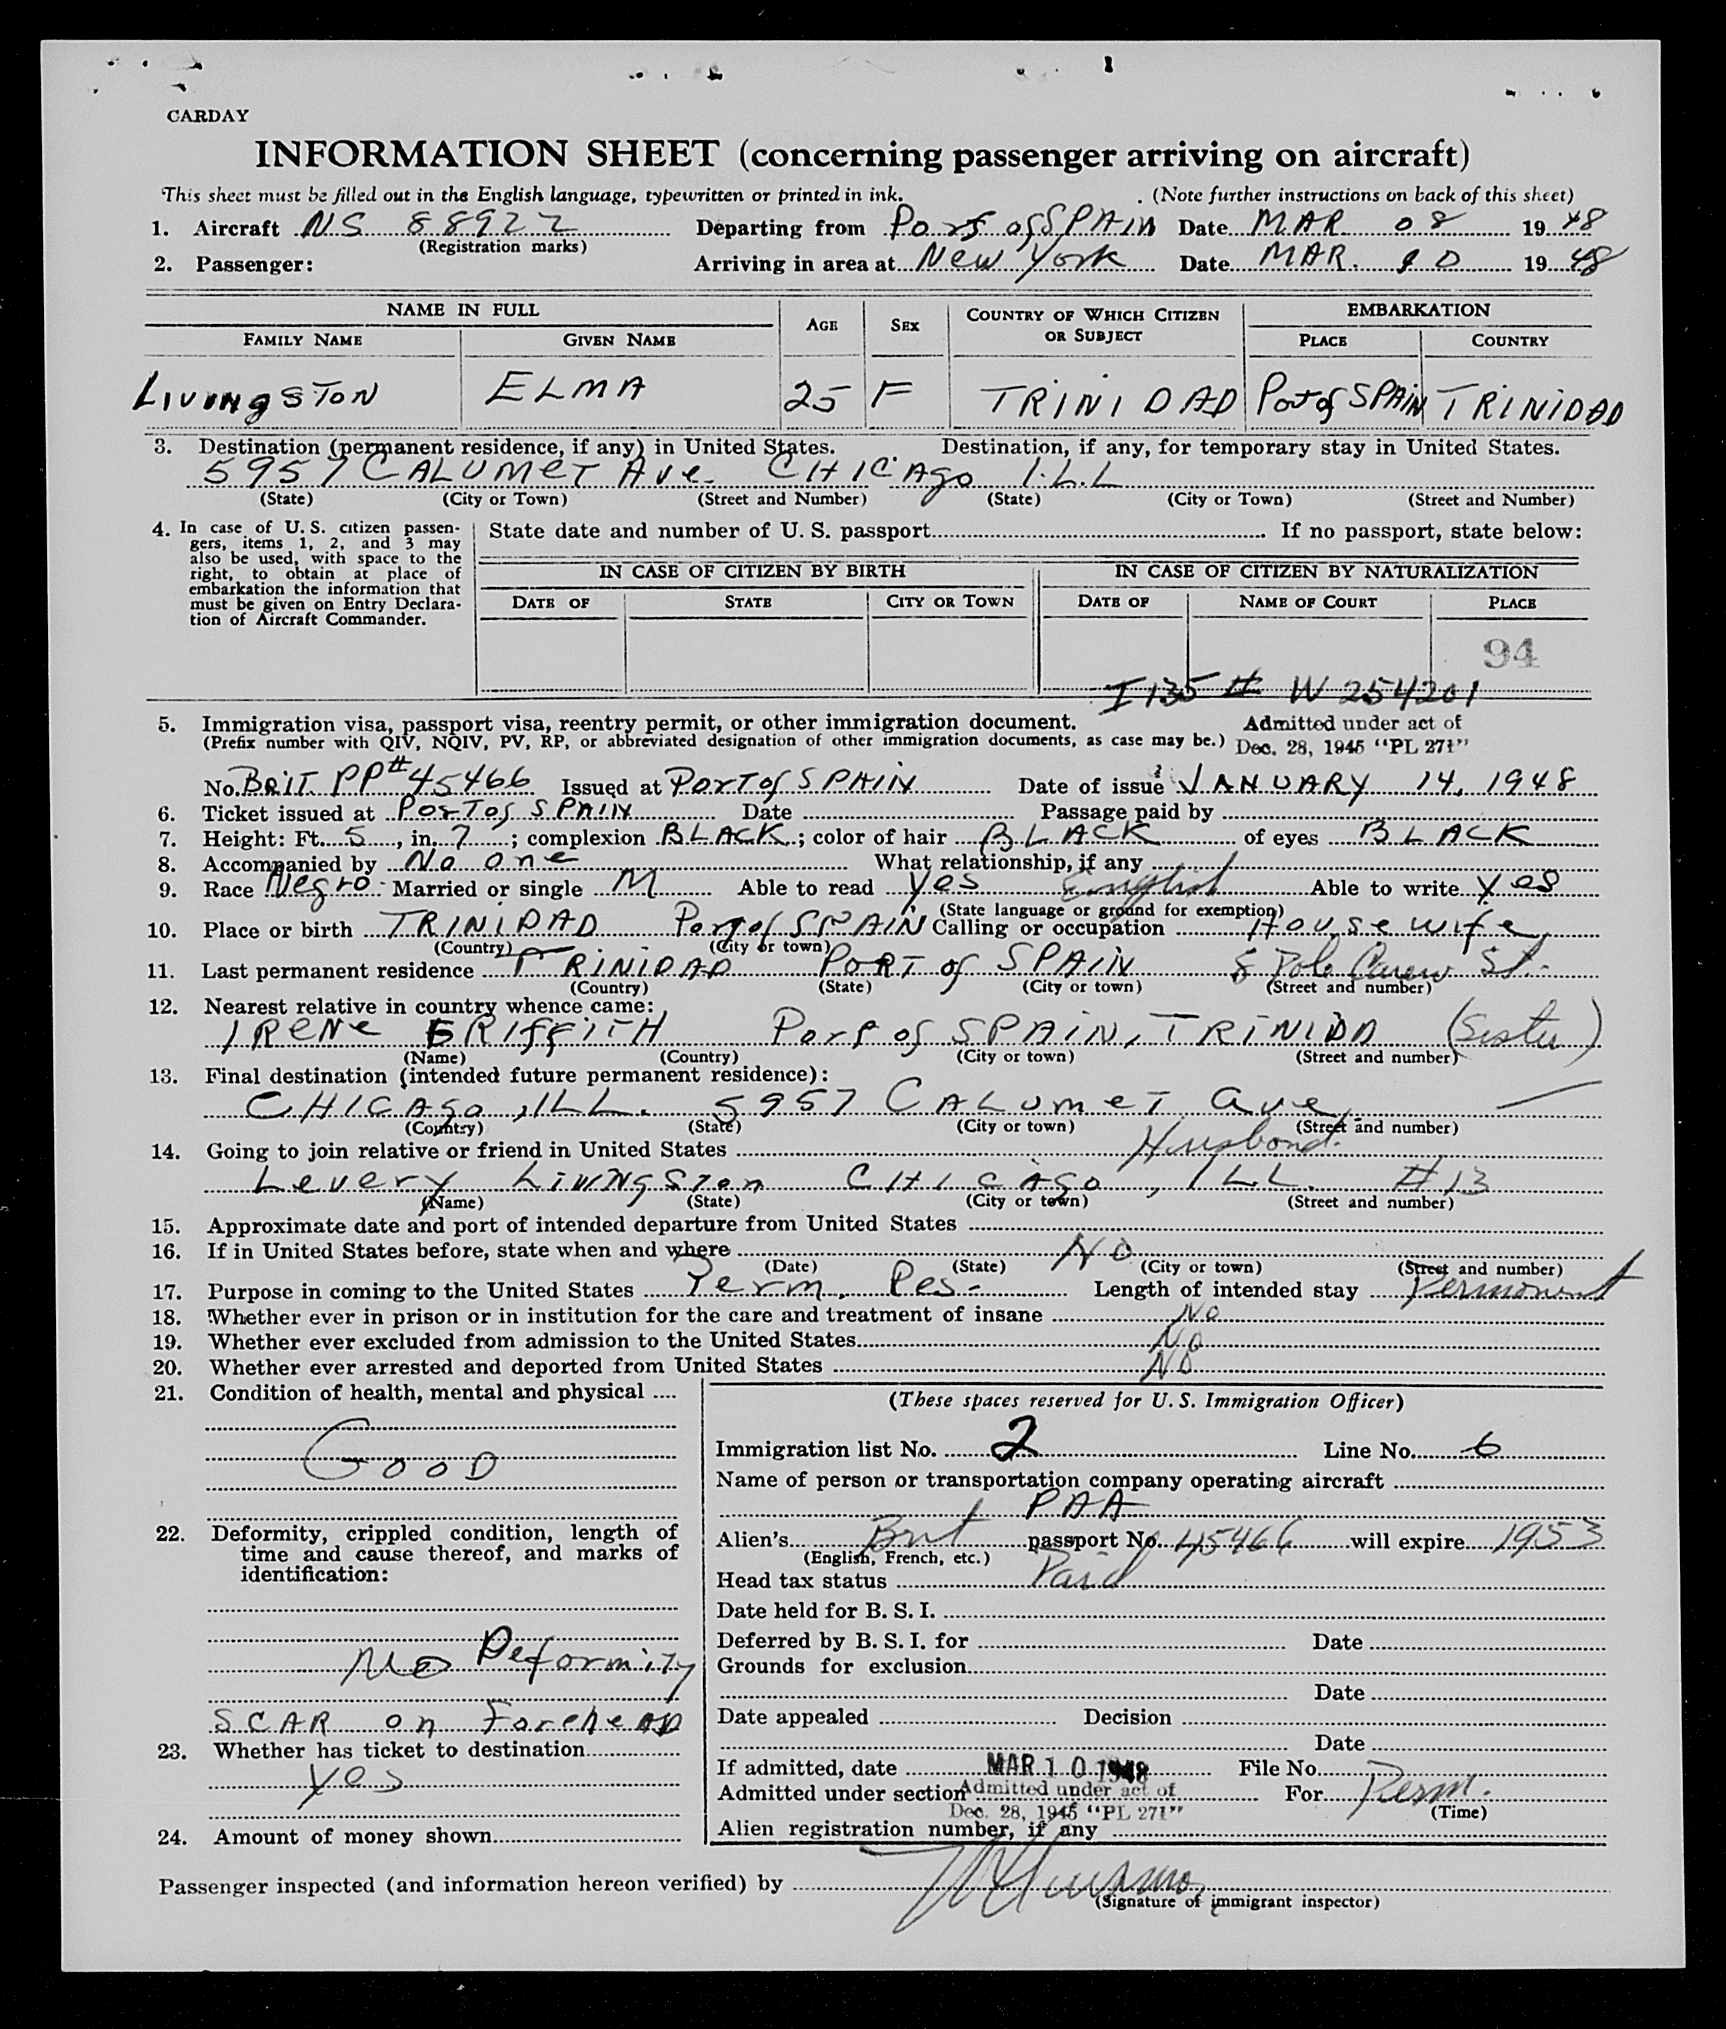 CARDAY
INFORMATION SHEET (concerning passenger arriving on aircraft)
This sheet must be filled out in the English language, typewritten or printed in ink. (Note further instructions on back of this sheet)
1. Aircraft NS 88922 Departing from Port of SPAIN Date MAR 08 1948
(Registration marks)
2. Passenger: Arriving in area at New York Date MAR. 10 1948
NAME IN FULL AGE SEX COUNTRY OF WHICH CITIZEN OR SUBJECT EMBARKATION
FAMILY NAME GIVEN NAME PLACE COUNTRY
LIVINGSTON ELMA 25 F TRINIDAD Port of SPAIN TRINIDAD
3. Destination (permanent residence, if any) in United States. Destination, if any, for temporary stay in United States.
5957 CALUMET Ave. CHICAgo I.L.L
(State) (City or Town) (Street and Number) (State) (City or Town) (Street and Number)
4. In case of U. S. citizen passengers, items 1, 2, and 3 may also be used, with space to the right, to obtain at place of embarkation the information that must be given on Entry Declaration of Aircraft Commander.
State date and number of U. S. passport If no passport, state below:
IN CASE OF CITIZEN BY BIRTH IN CASE OF CITIZEN BY NATURALIZATION
DATE OF STATE CITY OR TOWN DATE OF NAME OF COURT PLACE
94
I 135 # W 254201
5. Immigration visa, passport visa, reentry permit, or other immigration document. Admitted under act of
(Prefix number with QIV, NQIV, PV, RP, or abbreviated designation of other immigration documents, as case may be.) Dec. 28, 1945 "PL 271"
No. BRIT. PP# 45466 Issued at PORT of SPAIN Date of issue JANUARY 14, 1948
6. Ticket issued at PORT of SPAIN Date Passage paid by
7. Height: Ft. 5, in. 7; complexion BLACK; color of hair BLACK of eyes BLACK
8. Accompanied by No one What relationship, if any
9. Race Negro Married or single M Able to read yes English Able to write yes
(State language or ground for exemption)
10. Place or birth TRINIDAD Port of SPAIN Calling or occupation House wife
(Country) (City or town)
11. Last permanent residence TRINIDAD PORT of SPAIN 8 Pole Carew St.
(Country) (State) (City or town) (Street and number)
12. Nearest relative in country whence came:
IRENE GRIFFITH Port of SPAIN, TRINIDA (Sister)
(Name) (Country) (City or town) (Street and number)
13. Final destination (intended future permanent residence):
CHICAgo, ILL. 5957 CALUMET Ave,
(Country) (State) (City or town) (Street and number)
14. Going to join relative or friend in United States Husband.
Levery Livingston CHICAgo, ILL. #13
(Name) (State) (City or town) (Street and number)
15. Approximate date and port of intended departure from United States
16. If in United States before, state when and where NO
(Date) (State) (City or town) (Street and number)
17. Purpose in coming to the United States Perm. Res. Length of intended stay Permanent
18. Whether ever in prison or in institution for the care and treatment of insane NO
19. Whether ever excluded from admission to the United States NO
20. Whether ever arrested and deported from United States NO
21. Condition of health, mental and physical
GOOD
22. Deformity, crippled condition, length of time and cause thereof, and marks of identification:
No Deformity
SCAR on ForeheAD
23. Whether has ticket to destination
Yes
24. Amount of money shown
(These spaces reserved for U. S. Immigration Officer)
Immigration list No. 2 Line No. 6
Name of person or transportation company operating aircraft
PAA
Alien's Brit passport No. 45466 will expire 1953
(English, French, etc.)
Head tax status Paid
Date held for B. S. I.
Deferred by B. S. I. for Date
Grounds for exclusion
Date
Date appealed Decision
Date
If admitted, date MAR 10 1948 File No.
Admitted under section Admitted under act of For Perm.
Dec. 28, 1945 "PL 271" (Time)
Alien registration number, if any
Passenger inspected (and information hereon verified) by
(Signature of immigrant inspector)